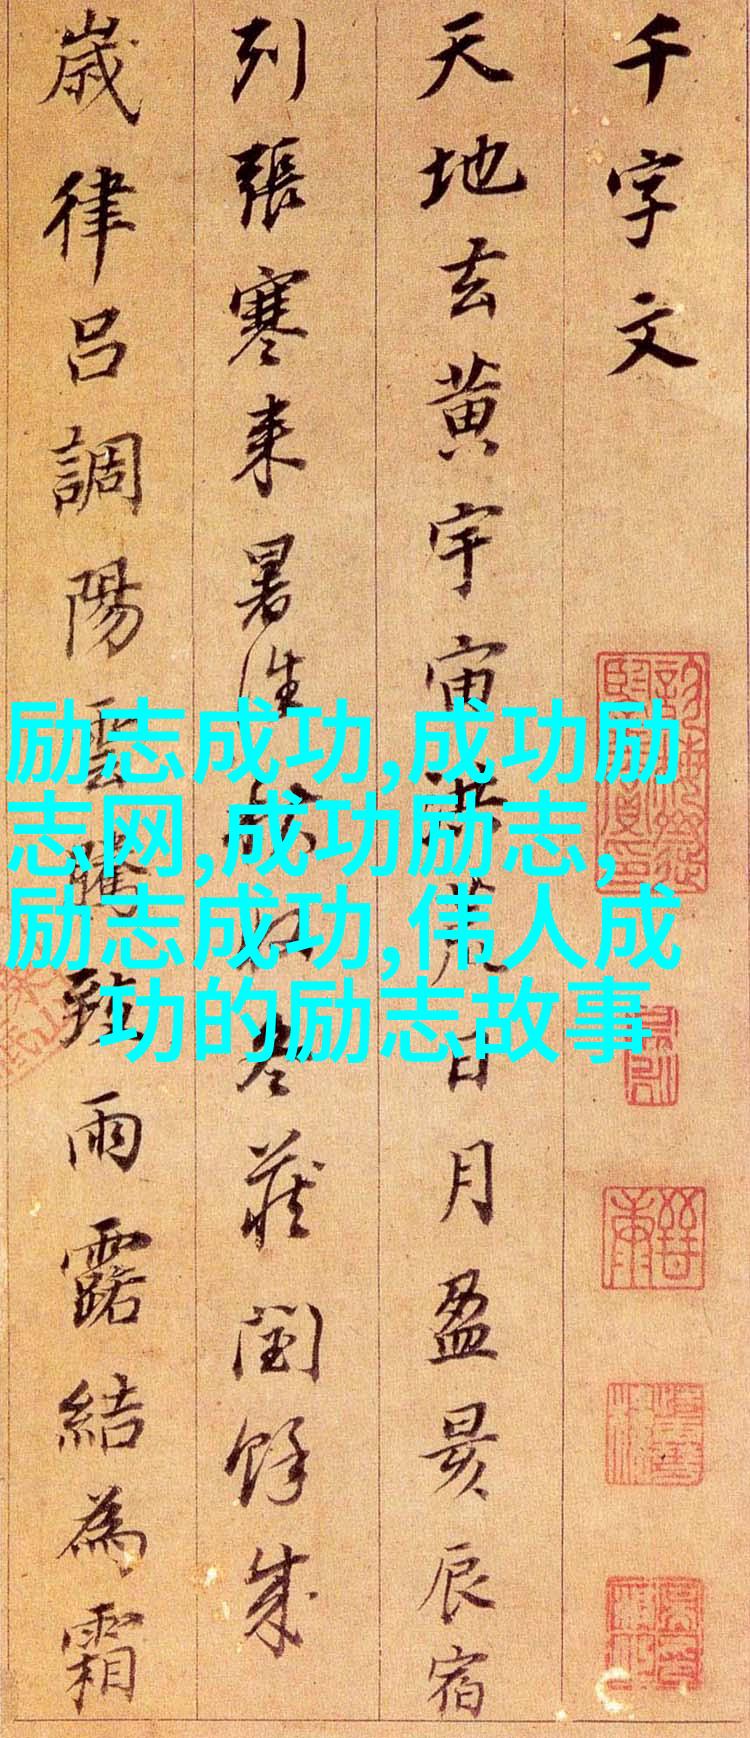 千字文
天地玄黄宇宙洪荒日月盈昃辰宿
列張寒来暑往秋收冬蔵閏餘成
歲律吕調陽雲騰致雨露結為霜
励志成功,成功励
志网,成功励志,
励志成功,伟人成
功的励志故事